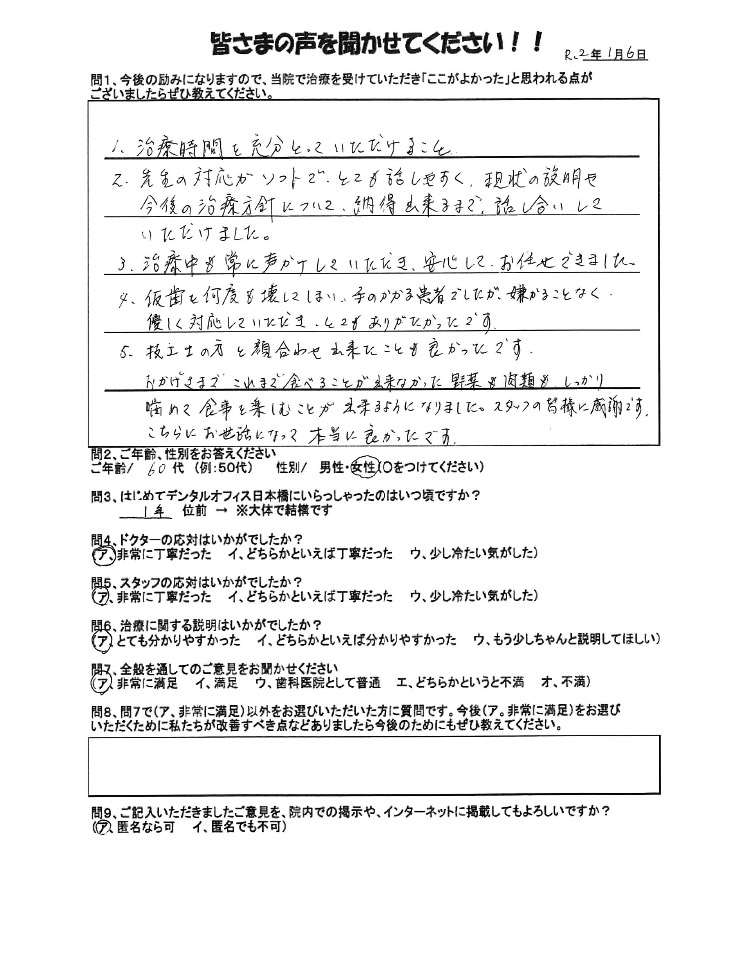 皆さまの声を聞かせてください！！
R.2年1月6日
問1、今後の励みになりますので、当院で治療を受けていただき「ここがよかった」と思われる点が
ございましたらぜひ教えてください。
1. 治療時間を充分とっていただけること
2. 先生の対応がソフトで、とても話しやすく、現状の説明や
今後の治療方針について、納得出来るまで、話し合いして
いただけました。
3. 治療中も常に声かけしていただき、安心して、お任せできました。
4. 仮歯を何度も壊してしまい、手のかかる患者でしたが、嫌がることなく、
優しく対応していただき、とてもありがたかったです。
5. 技工士の方と顔合わせ出来たことも良かったです。
おかげさまで これまで食べることが出来なかった野菜も肉類も しっかり
噛めて食事を楽しむことが出来るようになりました。スタッフの皆様に感謝です。
こちらにお世話になって 本当に良かったです。
問2、ご年齢、性別をお答えください
ご年齢/ 60代 (例:50代) 性別/ 男性・女性(○をつけてください)
問3、はじめてデンタルオフィス日本橋にいらっしゃったのはいつ頃ですか？
1年 位前 → ※大体で結構です
問4、ドクターの応対はいかがでしたか？
(ア、非常に丁寧だった イ、どちらかといえば丁寧だった ウ、少し冷たい気がした)
問5、スタッフの応対はいかがでしたか？
(ア、非常に丁寧だった イ、どちらかといえば丁寧だった ウ、少し冷たい気がした)
問6、治療に関する説明はいかがでしたか？
(ア、とても分かりやすかった イ、どちらかといえば分かりやすかった ウ、もう少しちゃんと説明してほしい)
問7、全般を通してのご意見をお聞かせください
(ア、非常に満足 イ、満足 ウ、歯科医院として普通 エ、どちらかというと不満 オ、不満)
問8、問7で(ア、非常に満足)以外をお選びいただいた方に質問です。今後(ア。非常に満足)をお選び
いただくために私たちが改善すべき点などありましたら今後のためにもぜひ教えてください。
問9、ご記入いただきましたご意見を、院内での掲示や、インターネットに掲載してもよろしいですか？
(ア、匿名なら可 イ、匿名でも不可)